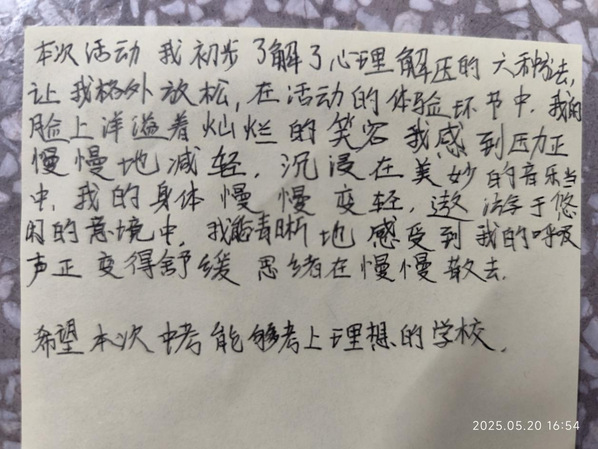 本次活动 我初步了解了心理解压的六种方法,
让我格外放松,在活动的体验环节中,我的
脸上洋溢着灿烂的笑容 我感到压力正
慢慢地减轻,沉浸在美妙的音乐当
中,我的身体慢慢变轻,遨游于悠
闲的意境中,我能清晰地感受到我的呼吸
声正变得舒缓 思绪在慢慢散去.
希望本次中考能够考上理想的学校.
2025.05.20 16:54